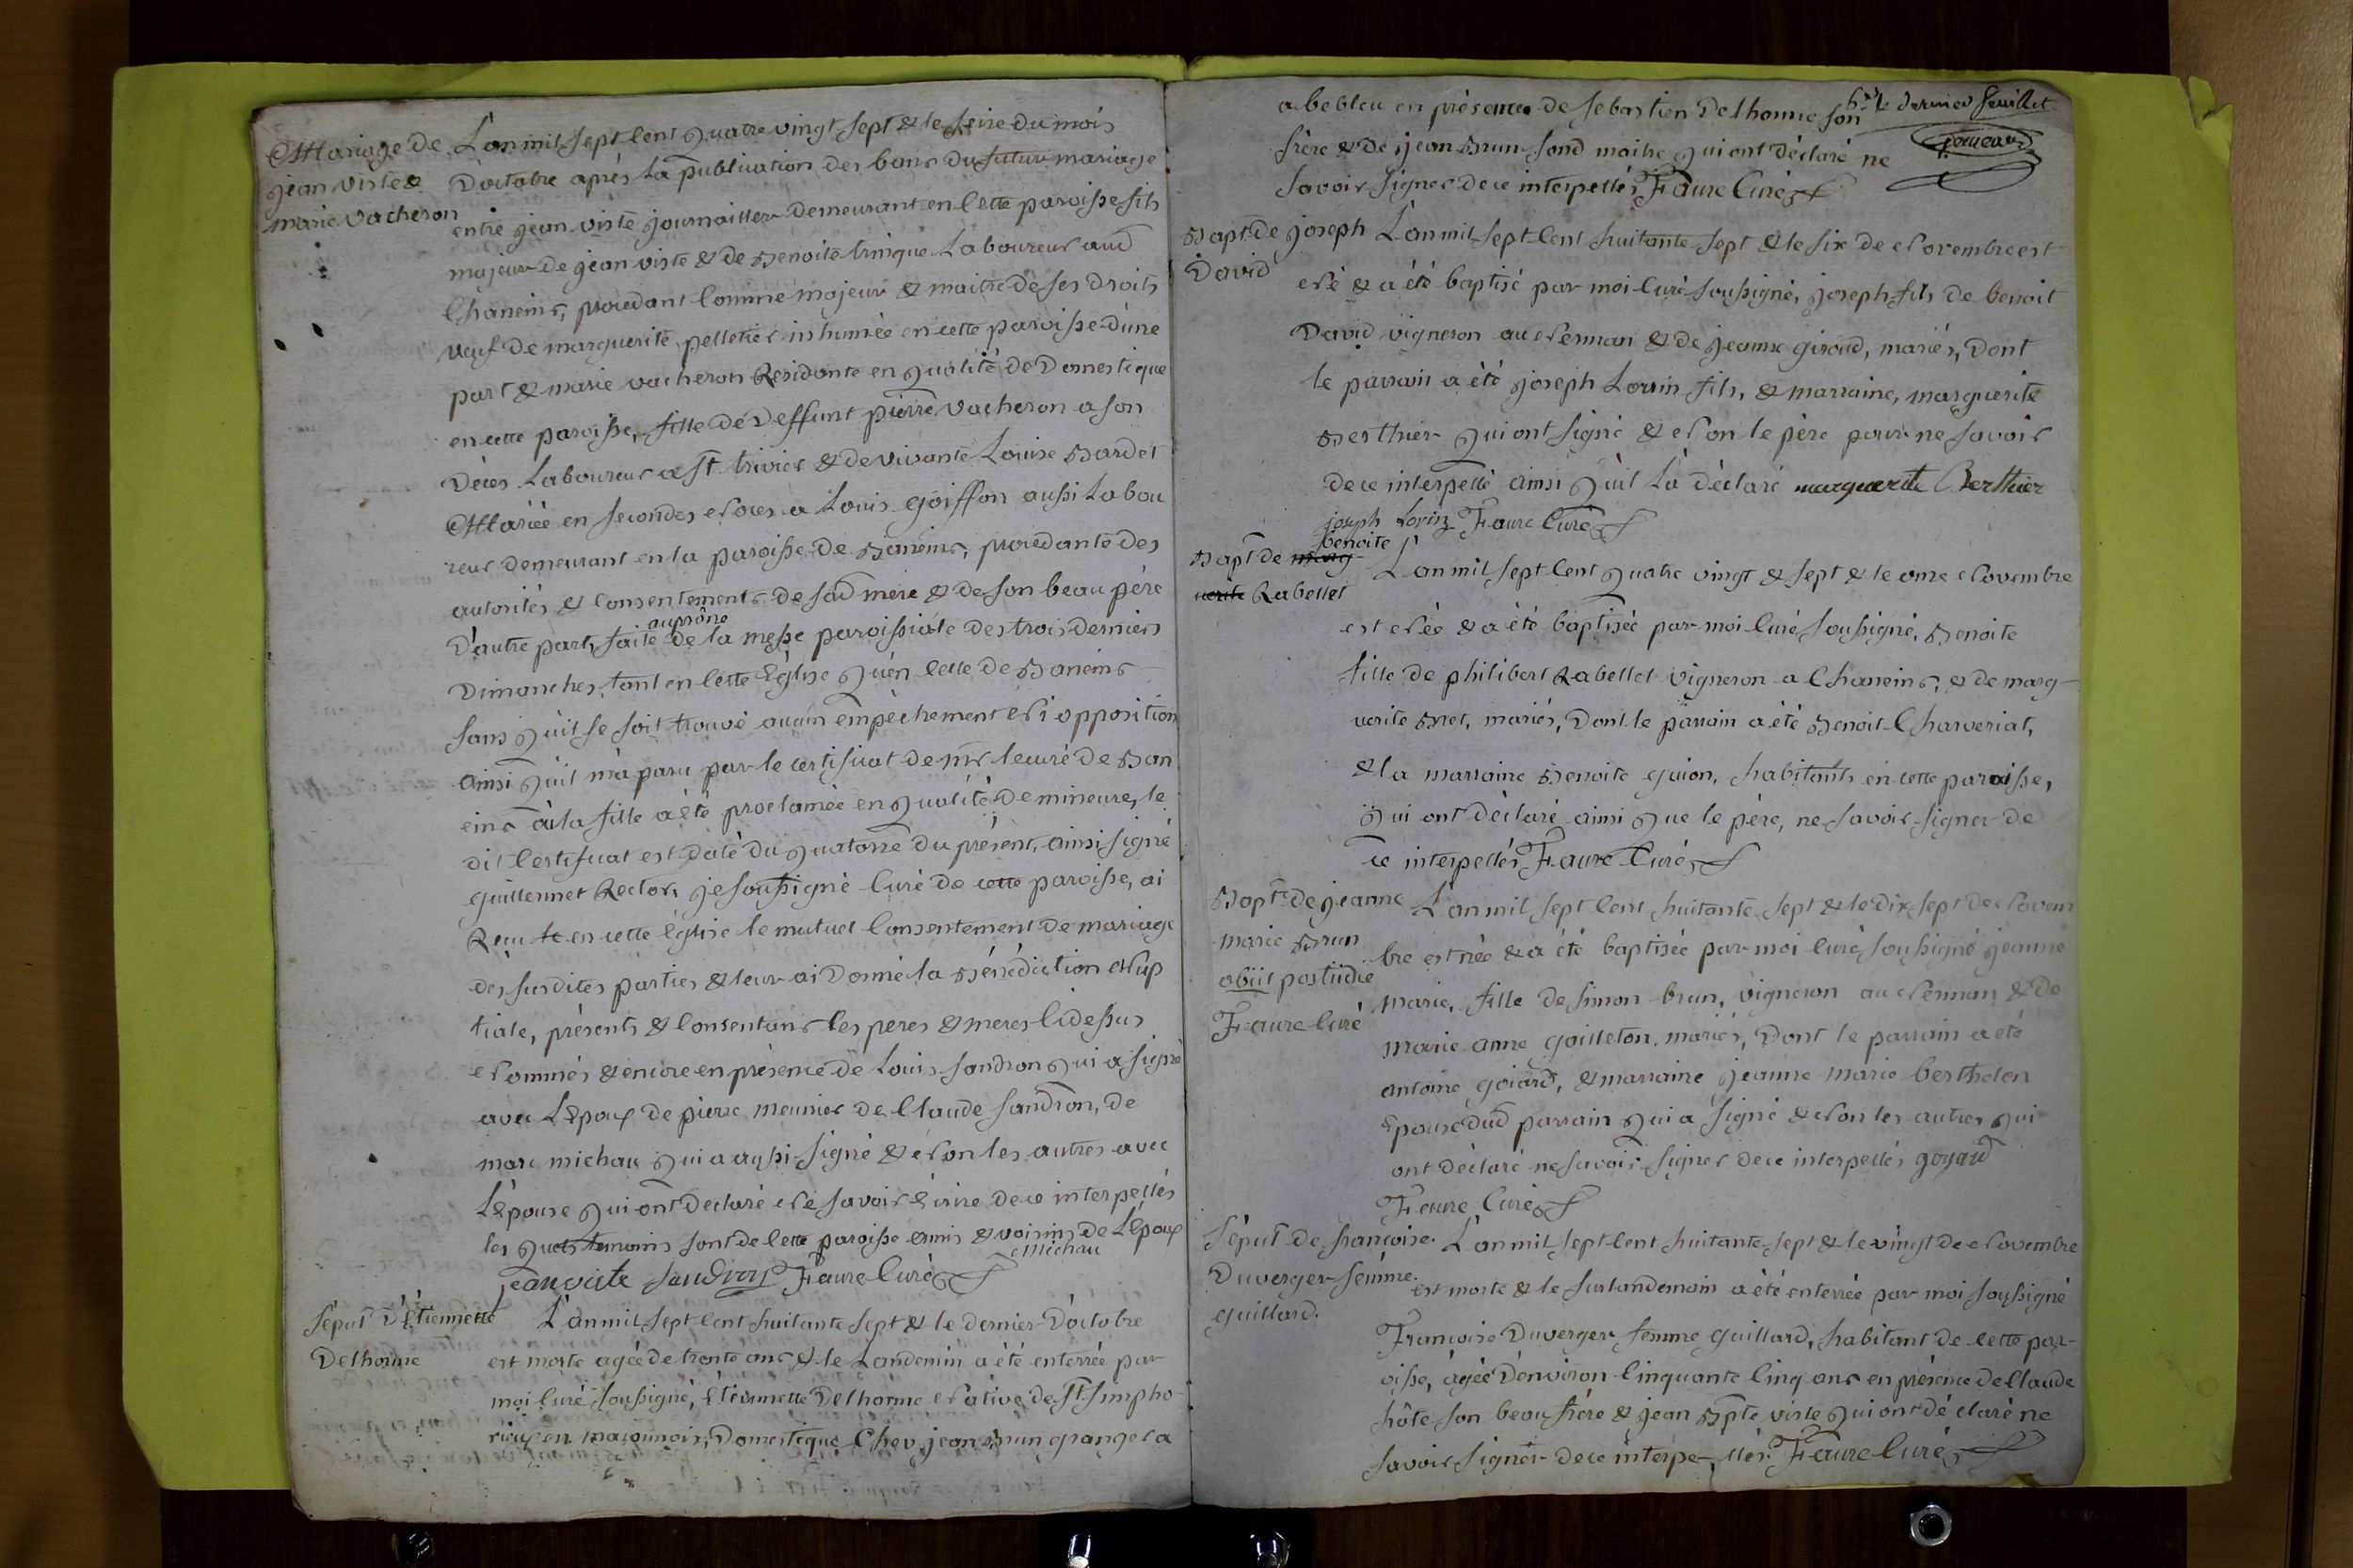 Mariage de
jean viste &
marie vacheron
L'an mil sept cent quatre vingt sept & le seize du mois
D'octobre après la publication des bans du futur mariage
entre jean viste journaillier demeurant en cette paroisse fils
majeur de jean viste & de Benoite trinque Laboureur aud
Chaneins, procedant comme majeur & maitre de ses droits
veuf de marguerite pelletier inhumée en cette paroisse d'une
part & marie vacheron Residante en qualité de Domestique
en cette paroisse, fille de deffunt pierre vacheron a son
décès Laboureur a st trivier & de vivante Louise Bardet
Mariée en secondes Noces a Louis goiffon aussi Labou
reur demeurant en la paroisse de Baneins, procedante des
autorités & consentements de sad mère & de son beau père
D'autre part, faite auprône de la messe paroissiale des trois derniers
Dimanches, tant en cette Eglise qu'en celle de Baneins
sans qu'il se soit trouvé aucun empêchement Ni opposition
ainsi qu'il m'a paru par le certificat de mr le curé de Ban
eins où la fille a été proclamée en qualité de mineure, le
dit Certificat est daté du quatorze du présent, ainsi signé
guillermet Rector, je soussigné Curé de cette paroisse, ai
Recu en cette église le mutuel Consentement de mariage
des susdites parties & leur ai Donné la Bénédiction Nup
tiale, présents & Consentans les peres & meres Cidessus
Nommés & encore en présence de Louis sandron qui a signé
avec L'Epoux de pierre meunier de Claude sandron, de
marc michau qui a aussi signé & Non les autres avec
L'épouse qui ont declaré Ne savoir écrire de ce interpellés
les quels temoins sont de cette paroisse amis & voisins de L'Epoux
Michau
jean viste sandron Faure Curé
Sépul D'étiennette
Delhorme
L'an mil sept cent huitante sept & le dernier D'octobre
est morte agée de trente ans & le Landemin a été enterrée par
moi Curé soussigné, Etiennette Delhorme Native de st simpho
rien en maconnois, Domestique Chez jean Brun granger a
6e & dernier feuillet
a bebleu en présence de sebastien Delhorme son
frère & de jean Brun sond maitre qui ont déclaré ne
savoir signer de ce interpellés Faure Curé
Bapt. de joseph
David
L'an mil sept Cent huitante sept & le six de Novembre est
Né & a été baptisé par moi Curé soussigné, joseph fils de benoit
David vigneron au Nennan & de jeanne giroud, mariés, Dont
le parrain a été joseph Lorrin fils, & marraine, marguerite
Berthier qui ont signé & Non le père pour ne savoir
de ce interpellé ainsi qu'il L'a déclaré marguerite Berthier
joseph Lorin Faure Curé
Bapt de marg benoite
uerite Rabellet
L'an mil sept Cent quatre vingt & sept & le onze Novembre
est Née & a été baptisée par moi Curé soussigné, Benoite
fille de philibert Rabellet vigneron a Chaneins, & de marg-
uerite Bret, mariés, Dont le parrain a été Benoit Charveriat,
& la marraine Benoite guion, habitants en cette paroisse,
qui ont déclaré ainsi que le père, ne savoir signer de
ce interpellés Faure Curé
Bapt. de jeanne
marie Brun
obiit postridie
Faure Curé
L'an mil sept Cent huitante sept & le dix sept de Novem
bre est née & a été baptisée par moi Curé soussigné jeanne
marie, fille de simon brun, vigneron au Nennan & de
marie anne goilleton, mariés, Dont le parrain a été
antoine goiard, & marraine jeanne marie berthelon
Epouse dud parrain qui a signé & Non les autres qui
ont déclaré ne savoir signer de ce interpellés goyard
Faure Curé
Sépul de françoise
Duverger femme
guillard.
L'an mil sept Cent huitante sept & le vingt de Novembre
est morte & le surlandemain a été enterrée par moi soussigné
Françoise Duverger femme guillard, habitant de cette par-
oisse, agée d'environ Cinquante Cinq ans en présence de Claude
hôte son beau frére & jean Bpte viste qui ont déclaré ne
savoir signer de ce interpe-llés. Faure Curé